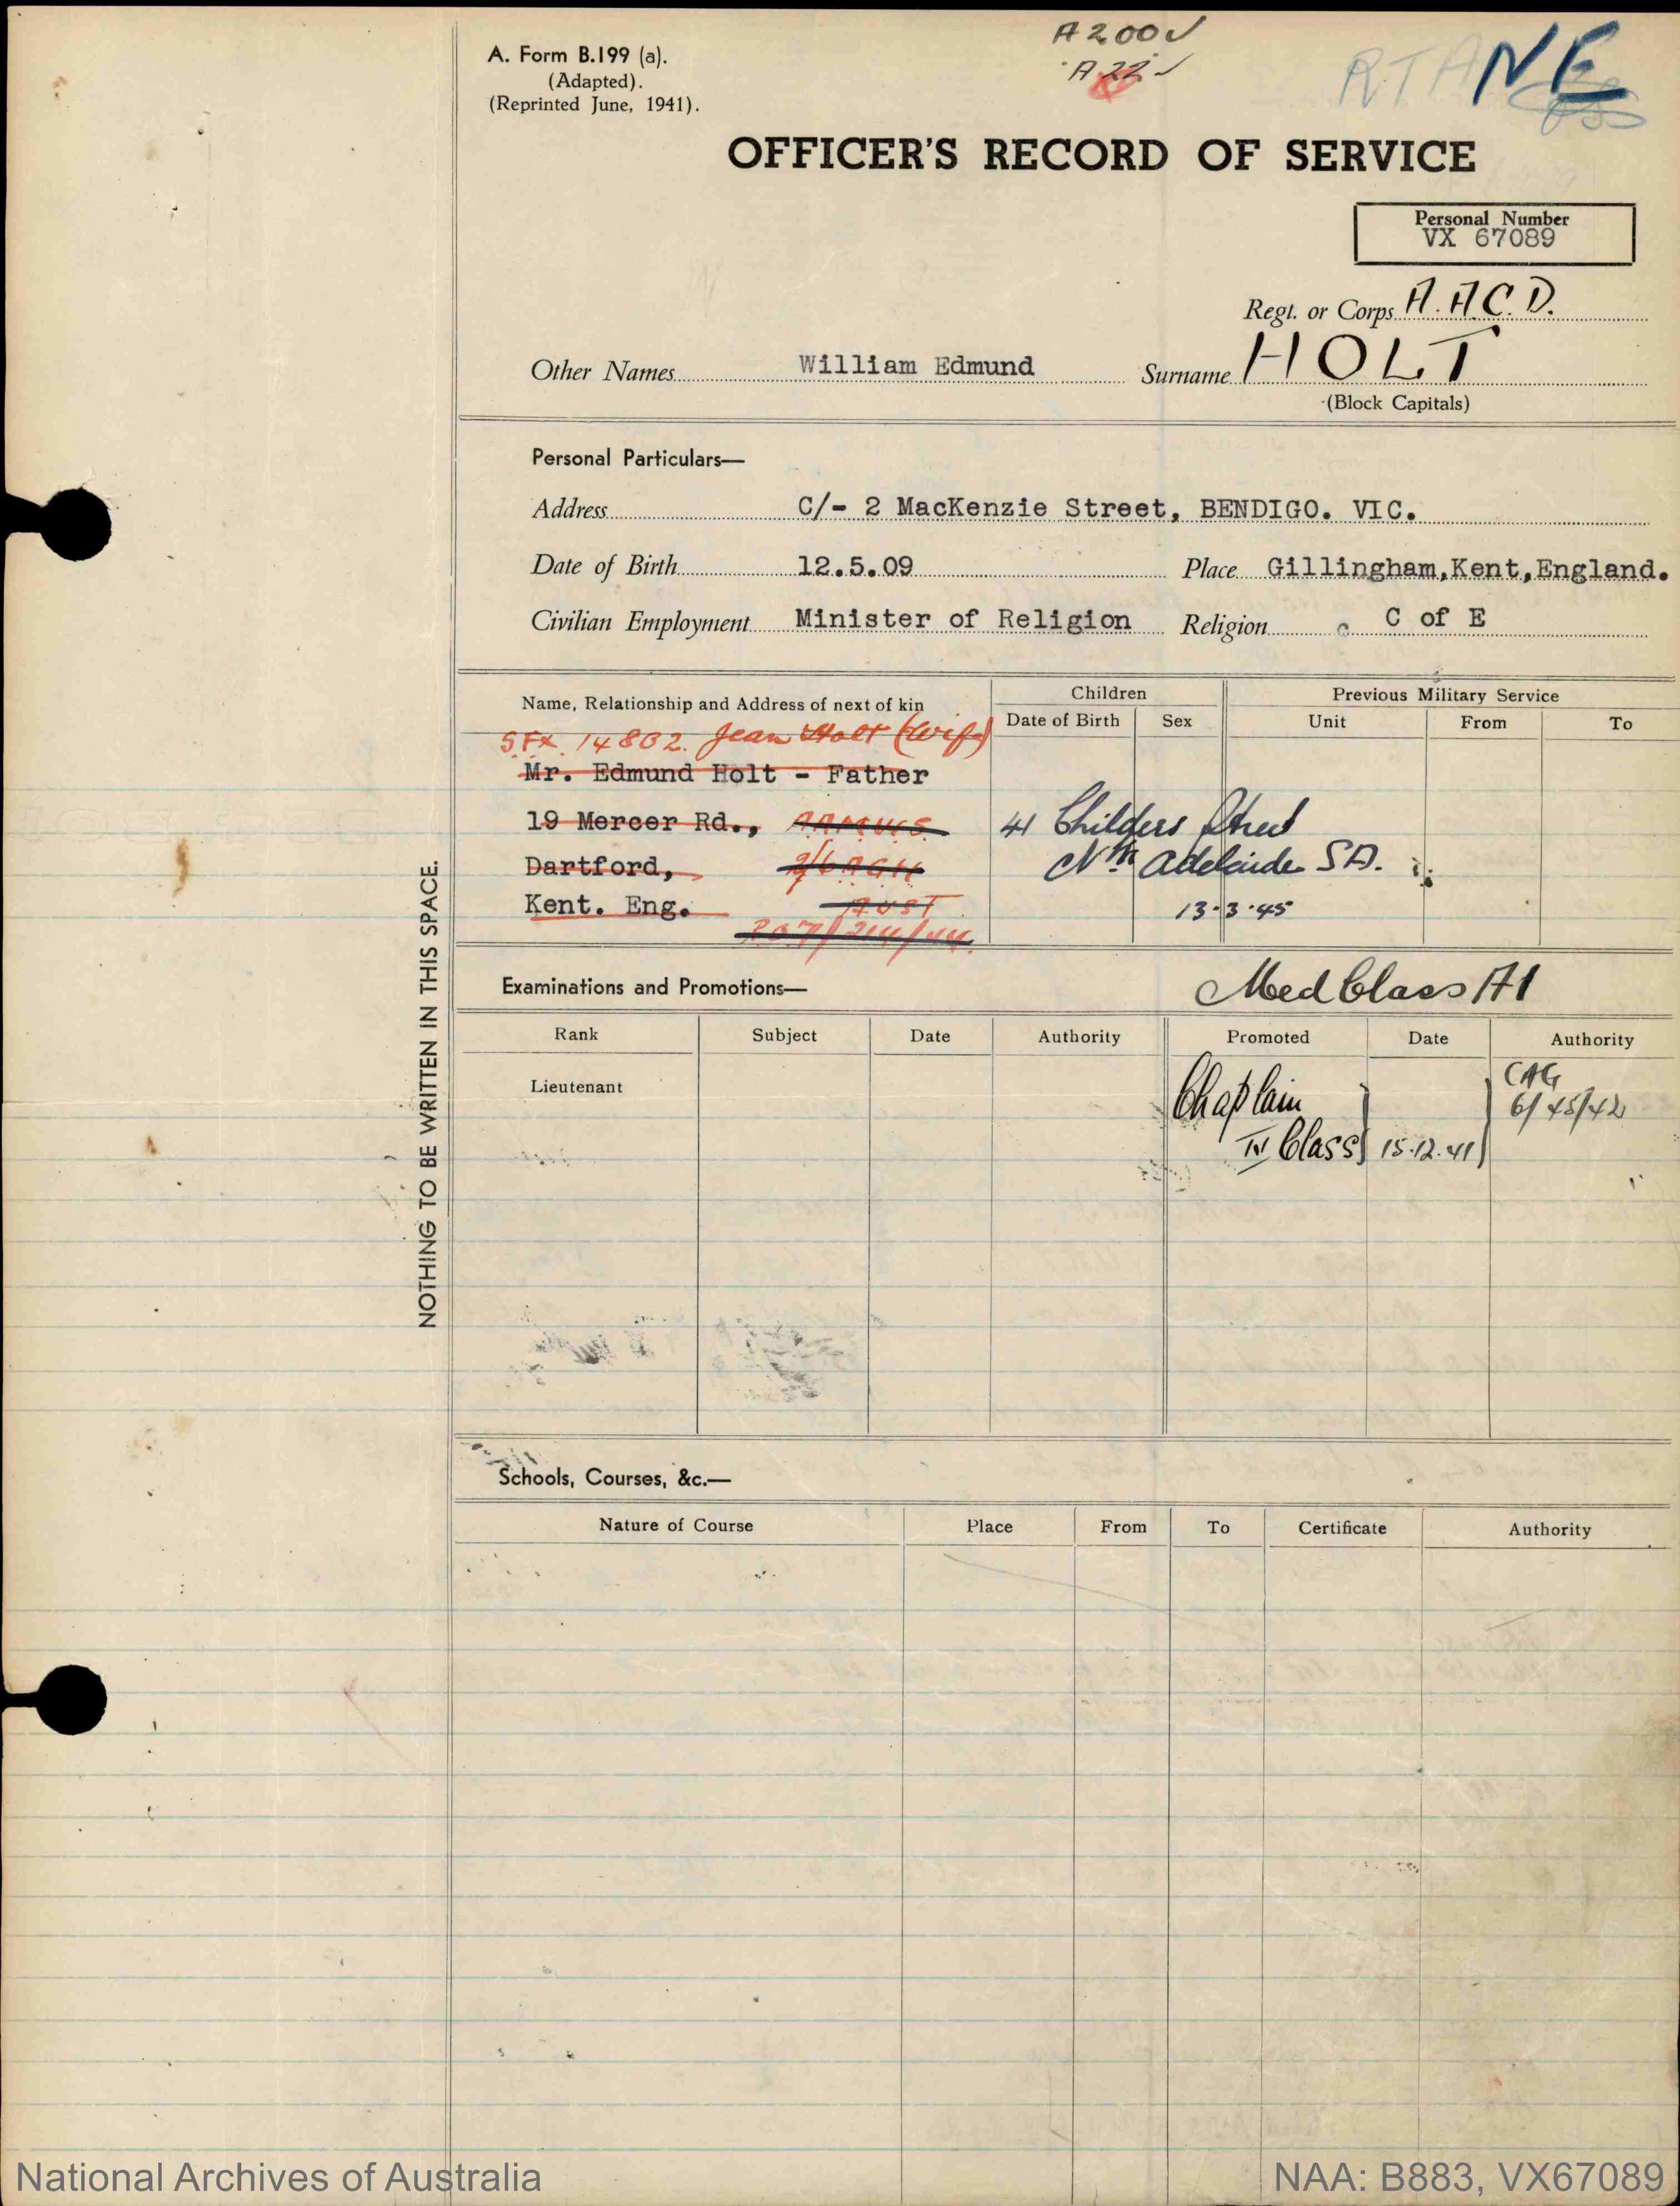 A 200 ✓
A 22 ✓
RTA NE
A. Form B.199 (a).
(Adapted).
(Reprinted June, 1941).
OFFICER'S RECORD OF SERVICE
Personal Number
VX 67089
Regt. or Corps A.A.C.D.
Other Names William Edmund Surname HOLT
(Block Capitals)
Personal Particulars—
Address C/- 2 MacKenzie Street, BENDIGO. VIC.
Date of Birth 12.5.09 Place Gillingham,Kent,England.
Civilian Employment Minister of Religion Religion C of E
Name, Relationship and Address of next of kin Children Previous Military Service
Date of Birth Sex Unit From To
SFX 14802. Jean Holt (Wife)
Mr. Edmund Holt - Father
19 Mercer Rd., AAMCWS 41 Childers Street
Dartford, 2/6 AGH Nth Adelaide SA.
Kent. Eng. AUST 13.3.45
NOTHING TO BE WRITTEN IN THIS SPACE.
Examinations and Promotions— Med Class A1
Rank Subject Date Authority Promoted Date Authority
Lieutenant Chaplain CAG
6/45/42
IV Class 15.12.41
Schools, Courses, &c.—
Nature of Course Place From To Certificate Authority
National Archives of Australia NAA: B883, VX67089